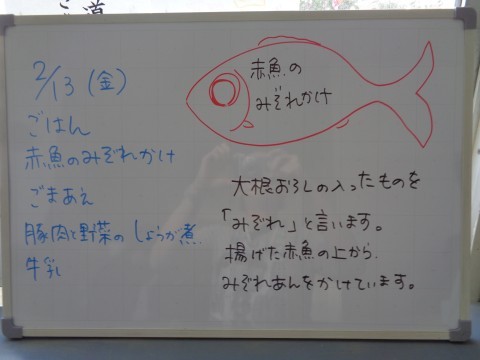 2/13 (金)
ごはん
赤魚のみぞれかけ
ごまあえ
豚肉と野菜のしょうが煮
牛乳
赤魚の
みぞれかけ
大根おろしの入ったものを
「みぞれ」と言います。
揚げた赤魚の上から、
みぞれあんをかけています。